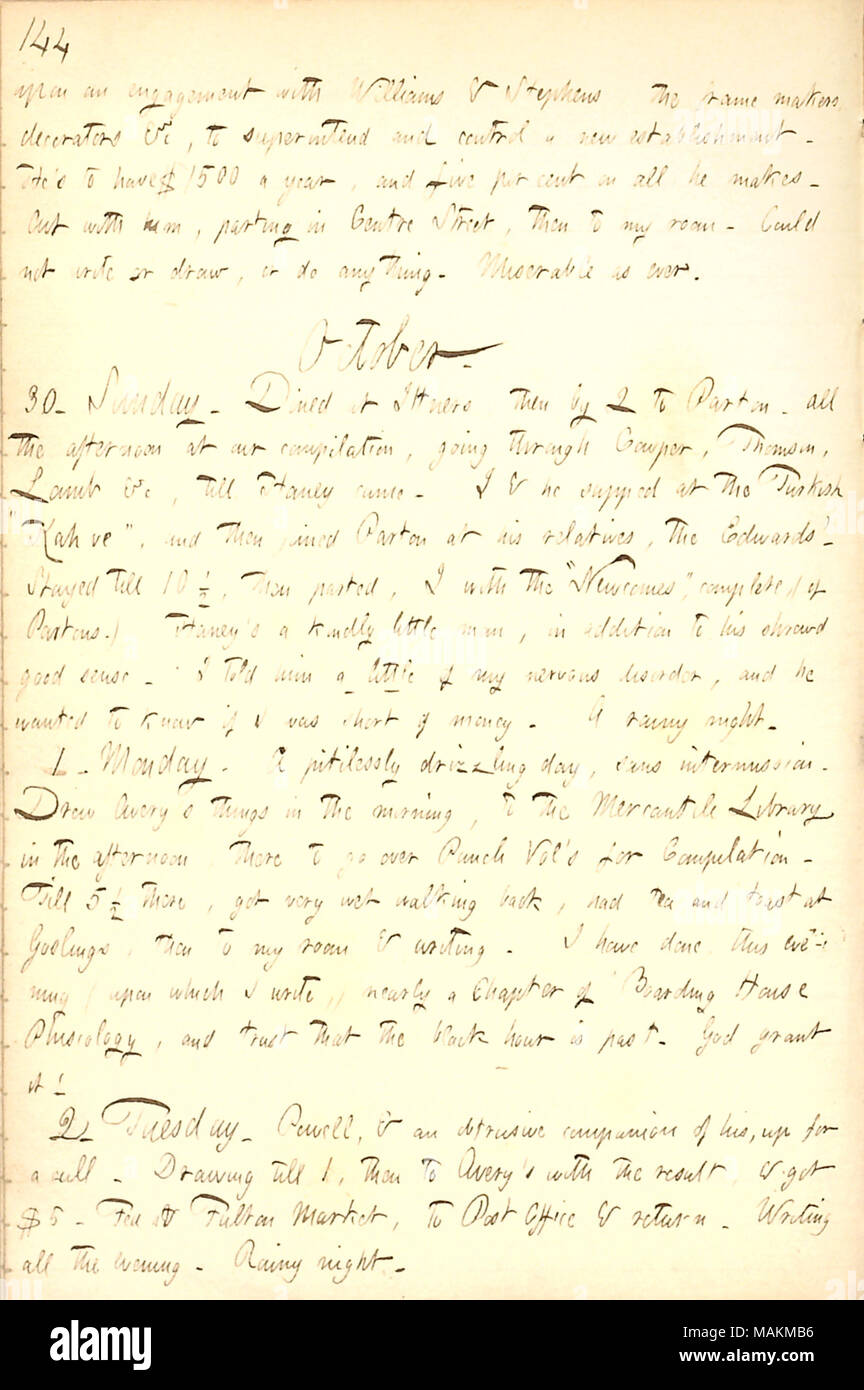 144
upon an engagement with Williams & Stephens the frame makers,
decorators &c, to superintend and control a new establishment.
He's to have $1500 a year, and five per cent on all he makes.
Out with him, parting in Centre Street, then to my room. Could
not write or draw, or do anything. Miserable as ever.
October.
30. Sunday. Dined at Ittners then by 2 to Parton. all
the afternoon at our compilation, going through Cowper, Thomson,
Lamb &c, till Haney came. I & he supped at the Turkish
"Kah ve", and then joined Parton at his relatives, the Edwards'.
Stayed till 10 ½, then parted, I with the "Newcomes", complete, (of
Partons.) Haney's a kindly little man, in addition to his shrewd
good sense. I told him a little of my nervous disorder, and he
wanted to know if I was short of money. A rainy night.
1. Monday. A pitilessly drizzling day, sans intermission.
Drew Avery's things in the morning, to the Mercantile Library
in the afternoon, there to go over Punch Vol's for Compilation.
Till 5 ½ there, got very wet walking back, had tea and toast at
Goslings, then to my room & writing. I have done this eve-
ning (upon which I write,) nearly a Chapter of Boarding House
Phisiology, and trust that the black hour is past. God grant
it!
2. Tuesday. Powell, & an obtrusive companion of his, up for
a call. Drawing till 1, then to Avery's with the result, & got
$5. Fed at Fulton Market, to Post Office & return. Writing
all the evening. Rainy night.
alamy
Image ID: MAKMB6
www.alamy.com